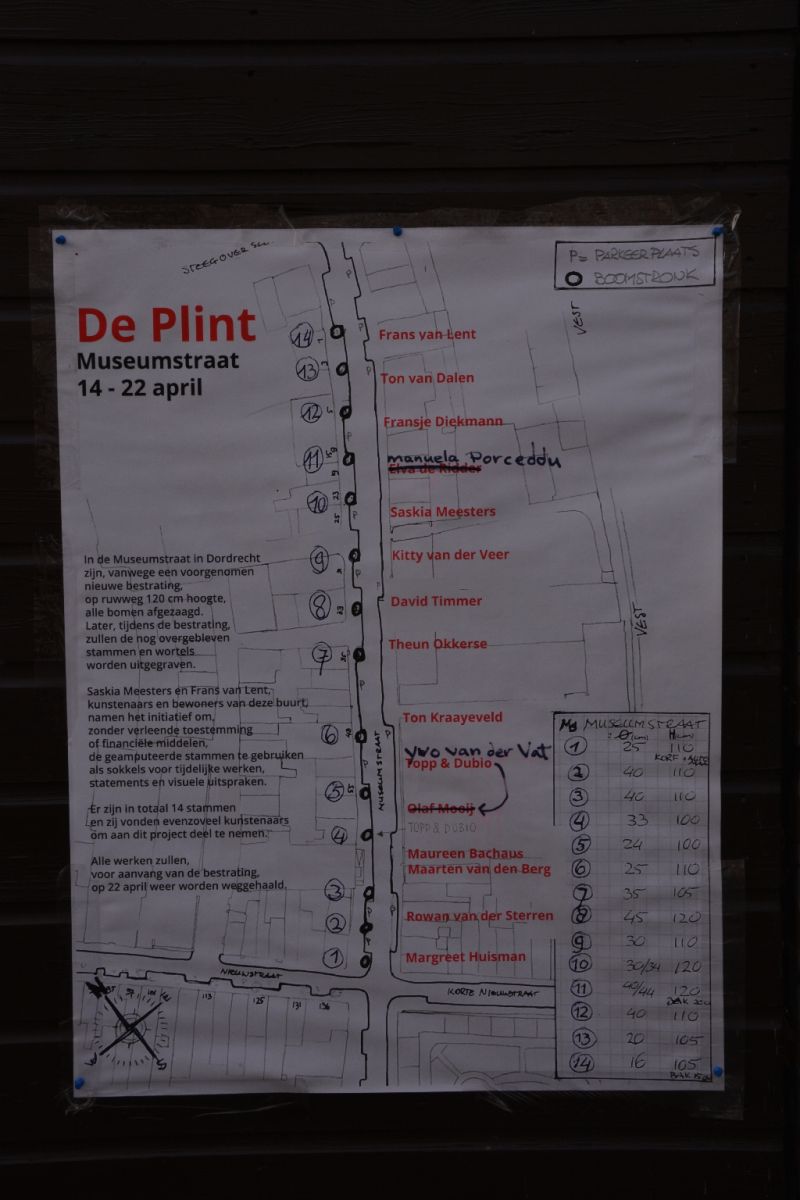 P= PARKEERPLAATS
BOOMSTRONK
De Plint
Museumstraat
14 - 22 april
VEST
14 Frans van Lent
13 Ton van Dalen
12 Fransje Diekmann
11 manuela Porceddu
Elva de Ridder
10 Saskia Meesters
9 Kitty van der Veer
8 David Timmer
7 Theun Okkerse
6 Ton Kraayeveld
yvo van der Vat
5 Topp & Dubio
Olaf Mooij
4 TOPP & DUBIO
Maureen Bachaus
3 Maarten van den Berg
2 Rowan van der Sterren
1 Margreet Huisman
In de Museumstraat in Dordrecht
zijn, vanwege een voorgenomen
nieuwe bestrating,
op ruwweg 120 cm hoogte,
alle bomen afgezaagd.
Later, tijdens de bestrating,
zullen de nog overgebleven
stammen en wortels
worden uitgegraven.
Saskia Meesters en Frans van Lent,
kunstenaars en bewoners van deze buurt,
namen het initiatief om,
zonder verleende toestemming
of financiële middelen,
de geamputeerde stammen te gebruiken
als sokkels voor tijdelijke werken,
statements en visuele uitspraken.
Er zijn in totaal 14 stammen
en zij vonden evenzoveel kunstenaars
om aan dit project deel te nemen.
Alle werken zullen,
voor aanvang van de bestrating,
op 22 april weer worden weggehaald.
MUSEUMSTRAAT
VEST
NIEUWSTRAAT
KORTE NIEUWSTRAAT
113 125 131 136
MUSEUMSTRAAT
1 25 110
2 40 110
3 40 110
4 33 100
5 24 100
6 25 110
7 35 105
8 45 120
9 30 110
10 30/34 120
11 40/44 120
12 40 110
13 20 105
14 16 105